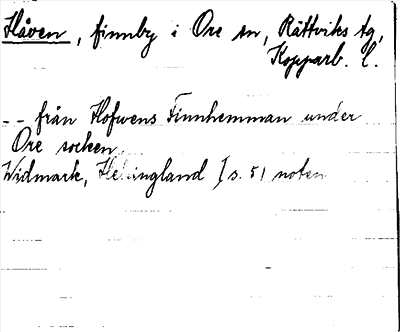 Håven, finnby i Ore sn, Rättviks tg,
Kopparb. l.
-- från Hofwens Finnhemman under
Ore socken.
Widmark, Helsingland I s. 51 noten